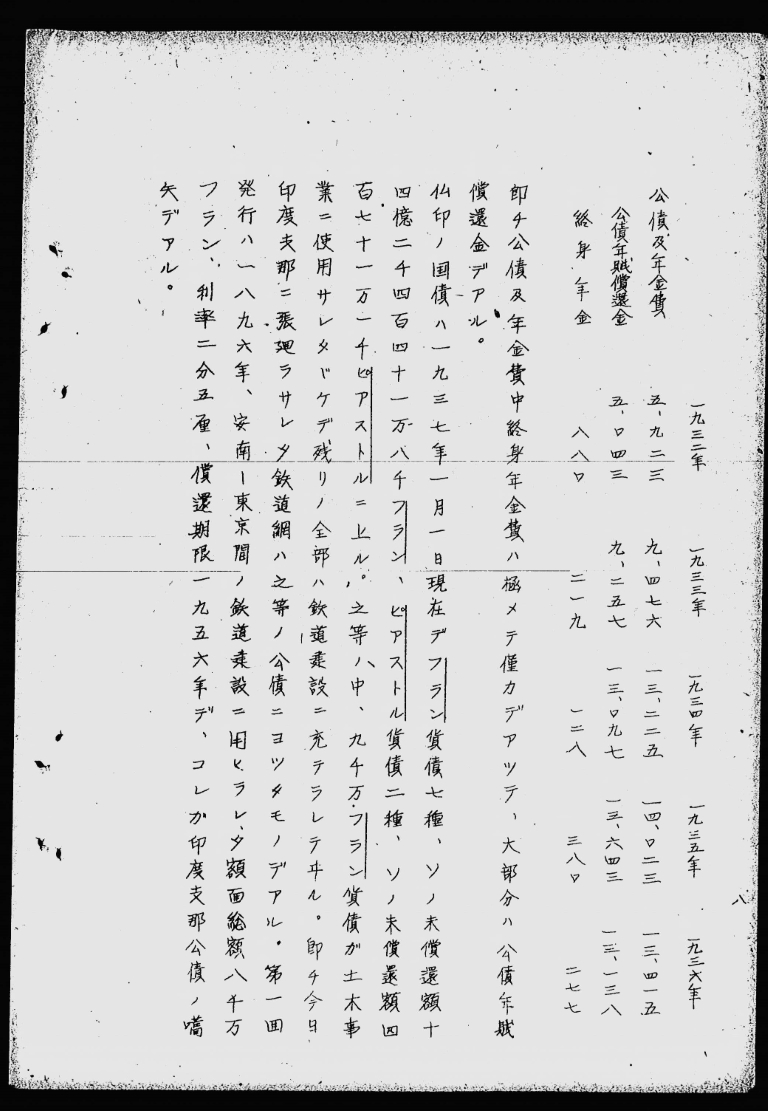 八
一九三二年 一九三三年 一九三四年 一九三五年 一九三六年
公債及年金費 五、九二三 九、四七六 一三、二二五 一四、〇二三 一三、四一五
公債年賦償還金 五、〇四三 九、二五七 一三、〇九七 一三、六四三 一三、一三八
終身年金 八八〇 二一九 一二八 三八〇 二七七
即チ公債及年金費中終身年金費ハ極メテ僅カデアツテ、大部分ハ公債年賦
償還金デアル。
仏印ノ国債ハ一九三七年一月一日現在デフラン貨債七種、ソノ未償還額十
四億二千四百四十一万八千フラン、ピアストル貨債二種、ソノ未償還額四
百七十一万一千ピアストルニ上ル。之等ハ中、九千万フラン貨債ガ土木事
業ニ使用サレタバケデ残リノ全部ハ鉄道建設ニ充テラレテヰル。即チ今日
印度支那ニ張廻ラサレタ鉄道網ハ之等ノ公債ニヨツタモノデアル。第一回
発行ハ一八九六年、安南ー東京間ノ鉄道建設ニ用ヒラレ、タ額面総額八千万
フラン、利率二分五厘、償還期限一九五六年デ、コレガ印度支那公債ノ嚆
矢デアル。